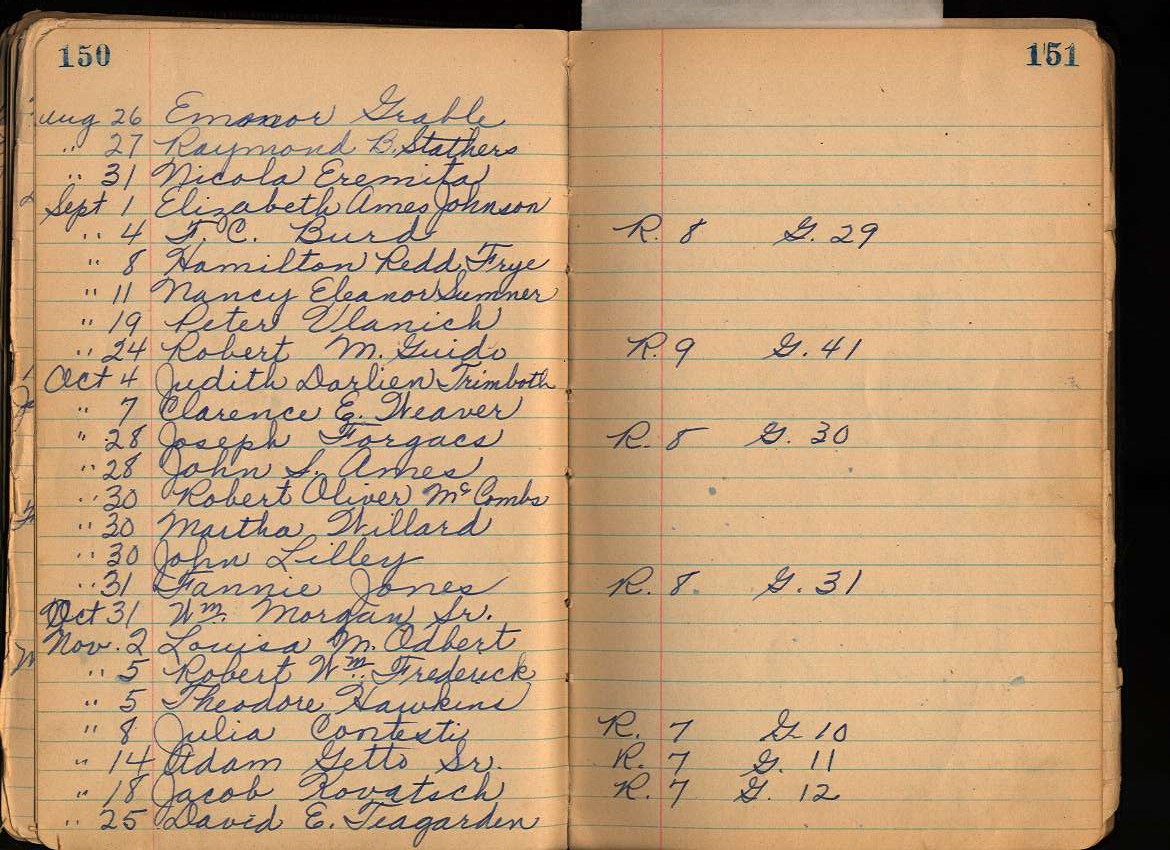 150
151
Aug 26 Emanor Grable
" 27 Raymond B. Stathers
" 31 Nicola Eremita
Sept 1 Elizabeth Ames Johnson
" 4 T. C. Burd R. 8 G. 29
" 8 Hamilton Redd Frye
" 11 Nancy Eleanor Sumner
" 19 Peter Vlanich
" 24 Robert M. Guido R. 9 G. 41
Oct 4 Judith Darlien Trimboth
" 7 Clarence E. Weaver
" 28 Joseph Forgacs R. 8 G. 30
" 28 John S. Ames
" 30 Robert Oliver McCombs
" 30 Martha Willard
" 30 John Lilley
" 31 Fannie Jones R. 8. G. 31
Oct 31 Wm. Morgan Sr.
Nov. 2 Louisa M. Odbert
" 5 Robert Wm. Frederick
" 5 Theodore Hawkins
" 8 Julia Contesti R. 7 G. 10
" 14 Adam Getto Sr. R. 7 G. 11
" 18 Jacob Kovatsch R. 7 G. 12
" 25 David E. Teagarden